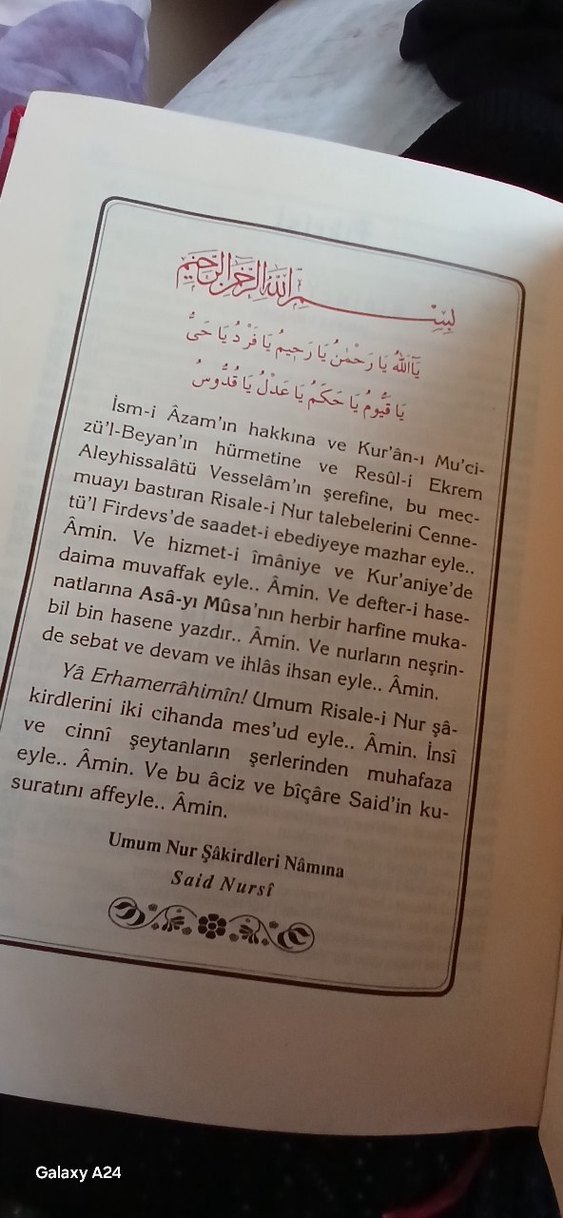 بِسْمِ اللّٰهِ الرَّحْمٰنِ الرَّحِيمِ
يَٓا اَللّٰهُ يَا رَحْمٰنُ يَا رَحِيمُ يَا فَرْدُ يَا حَىُّ
يَا قَيُّومُ يَا حَكَمُ يَا عَدْلُ يَا قُدُّوسُ
İsm-i Âzam'ın hakkına ve Kur'ân-ı Mu'ci-
zü'l-Beyan'ın hürmetine ve Resûl-i Ekrem
Aleyhissalâtü Vesselâm'ın şerefine, bu mec-
muayı bastıran Risale-i Nur talebelerini Cenne-
tü'l Firdevs'de saadet-i ebediyeye mazhar eyle..
Âmin. Ve hizmet-i îmâniye ve Kur'aniye'de
daima muvaffak eyle.. Âmin. Ve defter-i hase-
natlarına Asâ-yı Mûsa'nın herbir harfine muka-
bil bin hasene yazdır.. Âmin. Ve nurların neşrin-
de sebat ve devam ve ihlâs ihsan eyle.. Âmin.
Yâ Erhamerrâhimîn! Umum Risale-i Nur şâ-
kirdlerini iki cihanda mes'ud eyle.. Âmin. İnsî
ve cinnî şeytanların şerlerinden muhafaza
eyle.. Âmin. Ve bu âciz ve bîçâre Said'in ku-
suratını affeyle.. Âmin.
Umum Nur Şâkirdleri Nâmına
Said Nursî
Galaxy A24